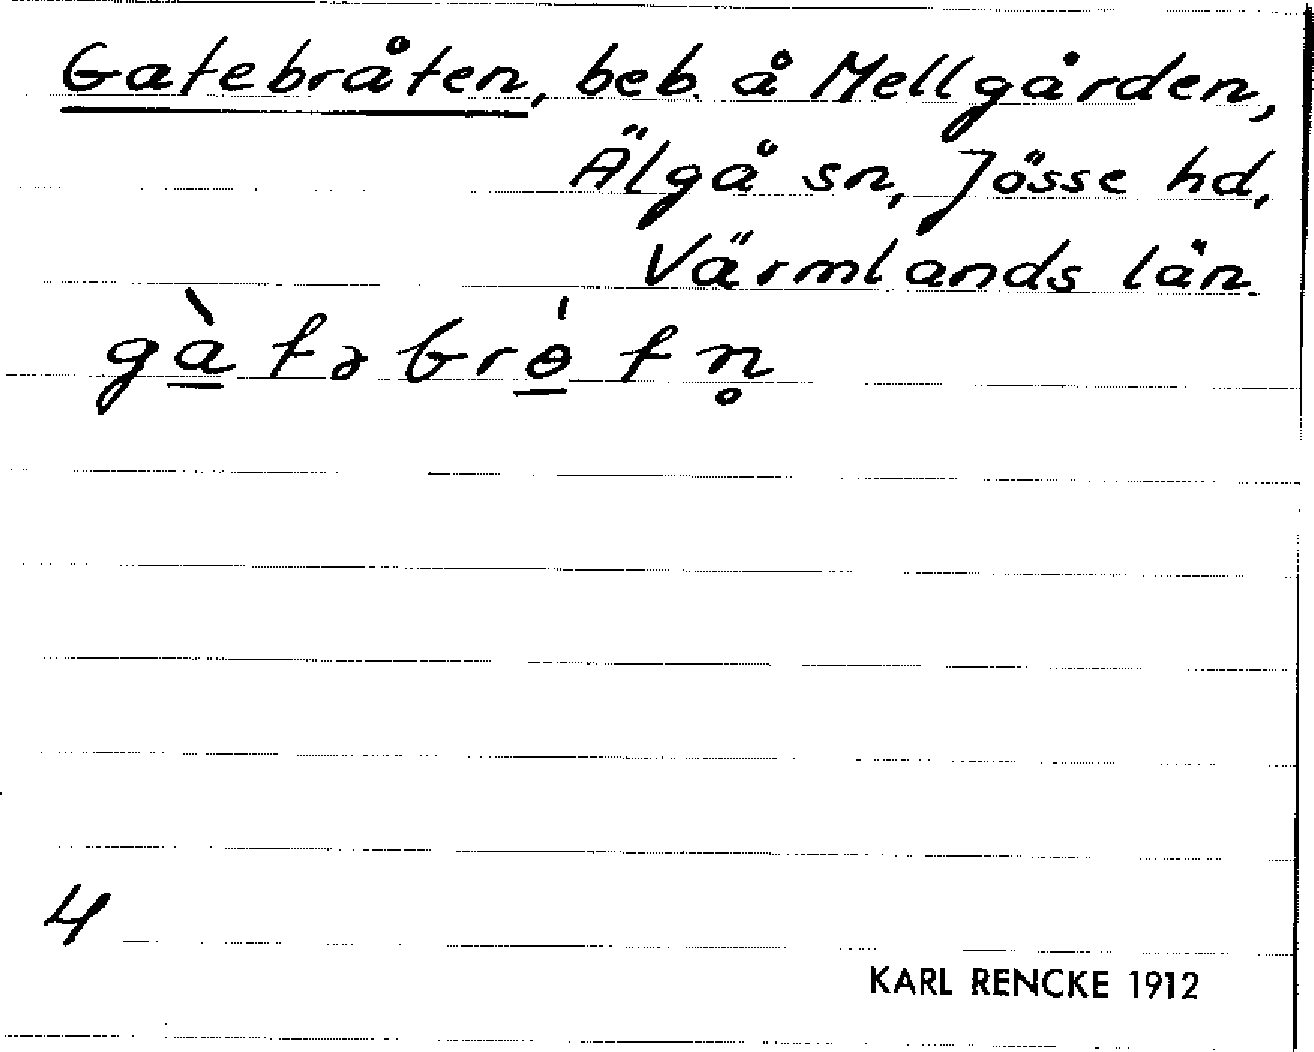 Gatebråten, beb. å Mellgården,
Älgå sn, Jösse hd,
Värmlands län.
gà̱təbrɵ̱́tn̥
4
KARL RENCKE 1912